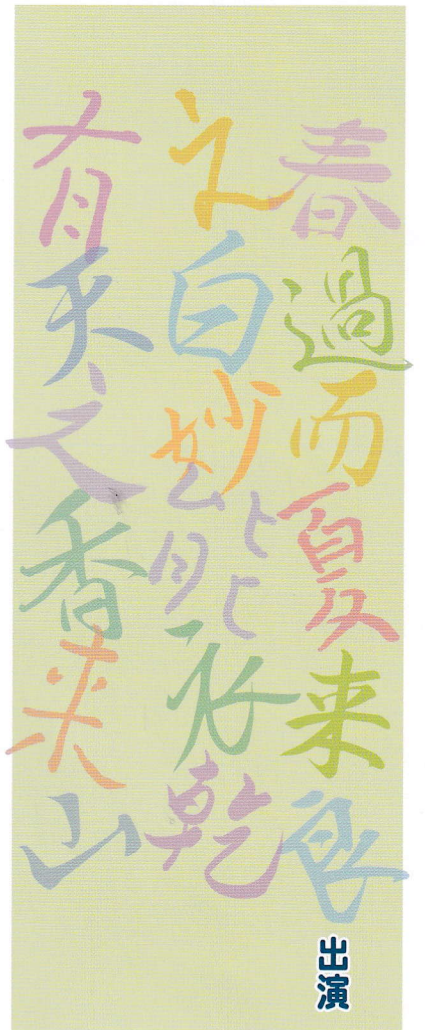 春過而夏来良
之白妙能衣乾
有天之香来山
出演